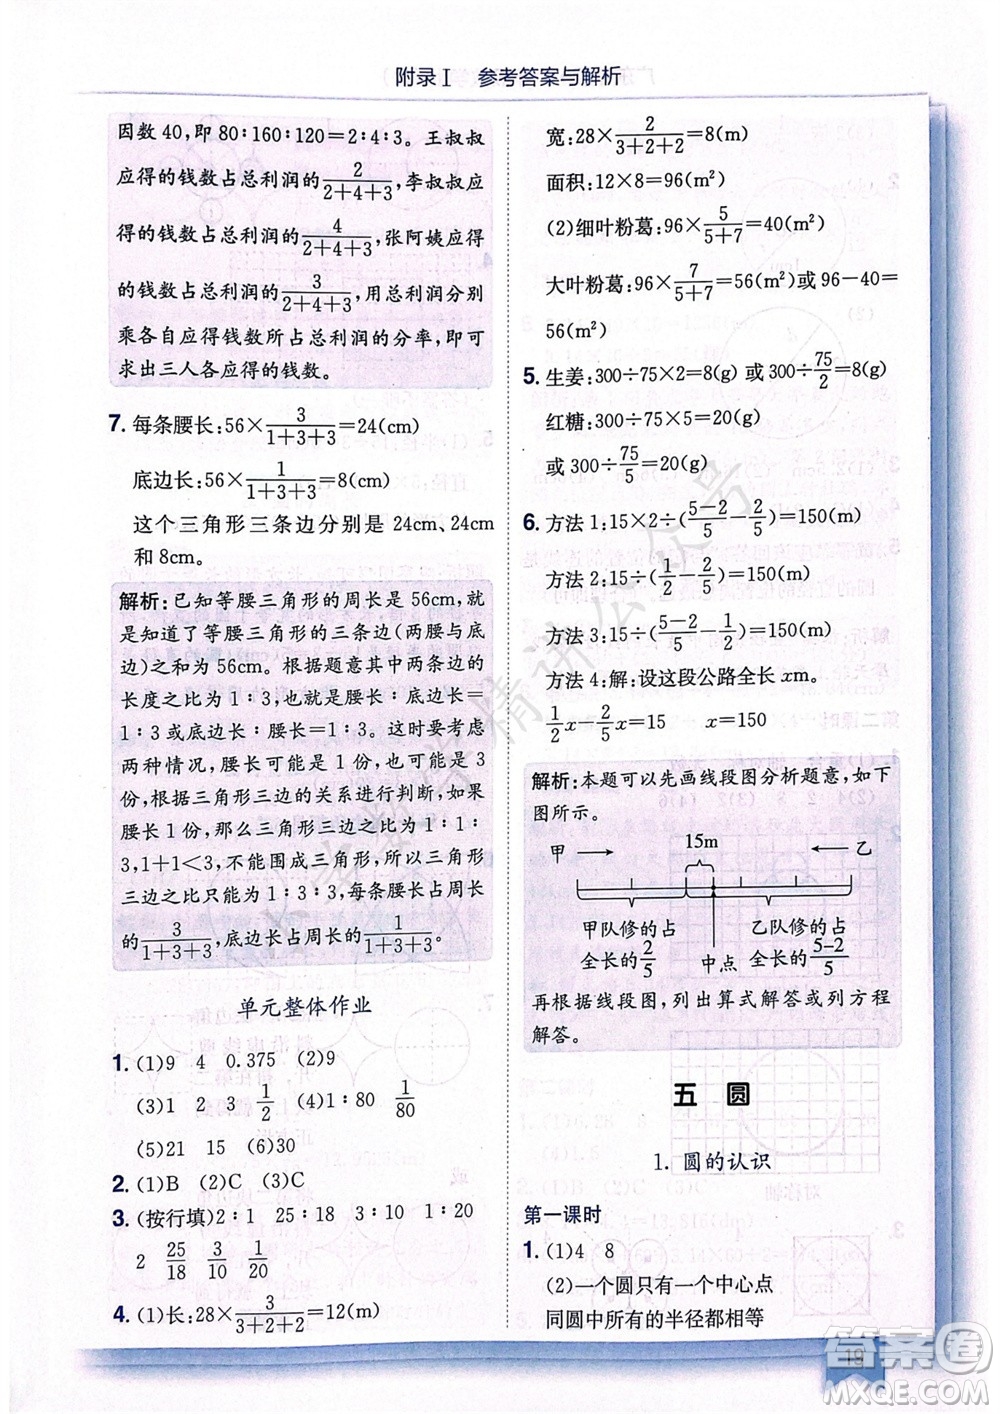 附录Ⅰ 参考答案与解析
因数 40,即 80∶160∶120=2∶4∶3。王叔叔
应得的钱数占总利润的2/(2+4+3),李叔叔应
得的钱数占总利润的4/(2+4+3),张阿姨应得
的钱数占总利润的3/(2+4+3),用总利润分别
乘各自应得钱数所占总利润的分率,即可
求出三人各应得的钱数。
7. 每条腰长:56×3/(1+3+3)=24(cm)
底边长:56×1/(1+3+3)=8(cm)
这个三角形三条边分别是 24cm、24cm
和 8cm。
解析:已知等腰三角形的周长是 56cm,也
就是知道了等腰三角形的三条边(两腰与底
边)之和为56cm。根据题意其中两条边的
长度之比为 1∶3,也就是腰长∶底边长=
1∶3或底边长∶腰长=1∶3。这时要考虑
两种情况,腰长可能是 1 份,也可能是 3
份,可根据三角形三边的关系进行判断,如果
腰长 1 份,那么三角形三边之比为 1∶1∶
3,1+1<3,不能围成三角形,所以三角形
三边之比只能为 1∶3∶3,每条腰长占周长
的3/(1+3+3),底边长占周长的1/(1+3+3)。
单元整体作业
1. (1)9 4 0.375 (2)9
(3)1 2 3 1/2 (4)1∶80 1/80
(5)21 15 (6)30
2. (1)B (2)C (3)C
3. (按行填)2∶1 25∶18 3∶10 1∶20
2 25/18 3/10 1/20
4. (1)长:28×3/(3+2+2)=12(m)
宽:28×2/(3+2+2)=8(m)
面积:12×8=96(m²)
(2)细叶粉葛:96×5/(5+7)=40(m²)
大叶粉葛:96×7/(5+7)=56(m²)或 96-40=
56(m²)
5. 生姜:300÷75×2=8(g) 或 300÷75/2=8(g)
红糖:300÷75×5=20(g)
或 300÷75/5=20(g)
6. 方法 1:15×2÷((5-2)/5-2/5)=150(m)
方法 2:15÷(1/2-2/5)=150(m)
方法 3:15÷((5-2)/5-1/2)=150(m)
方法 4:解:设这段公路全长 xm。
1/2x-2/5x=15 x=150
解析:本题可以先画线段图分析题意,如下
图所示。
15m
甲 乙
甲队修的占 乙队修的占
全长的2/5 中点 全长的(5-2)/5
再根据线段图,列出算式解答或列方程
解答。
五 圆
1. 圆的认识
第一课时
1. (1)4 8
(2)一个圆只有一个中心点
同圆中所有的半径都相等
19
答案圈
MXQE.COM